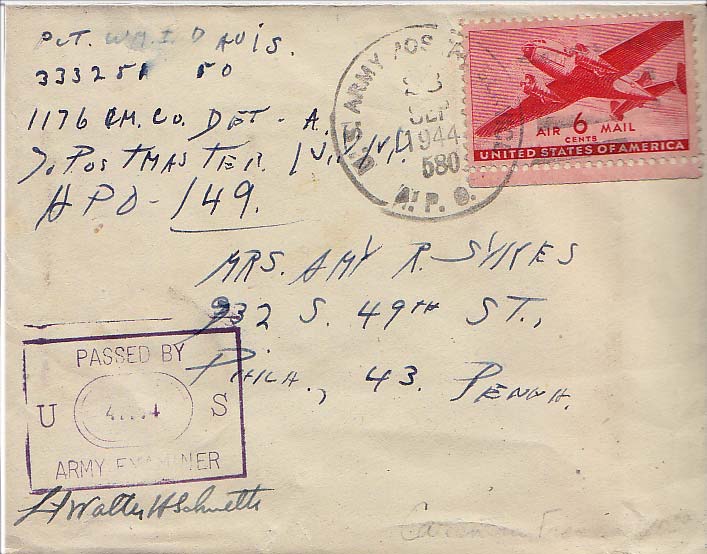 PVT. WM. I. DAVIS.
1176 CM. CO. DET - A.
% POSTMASTER.
APO - 149.
U.S. ARMY POSTAL
23
SEP
1944
580
A. P. O.
AIR 6 MAIL
CENTS
UNITED STATES OF AMERICA
MRS. AMY R. SYKES
932 S. 49TH ST.,
PHILA., 43. PENNA.
PASSED BY
U S
ARMY EXAMINER
Lt Walter H Schuette